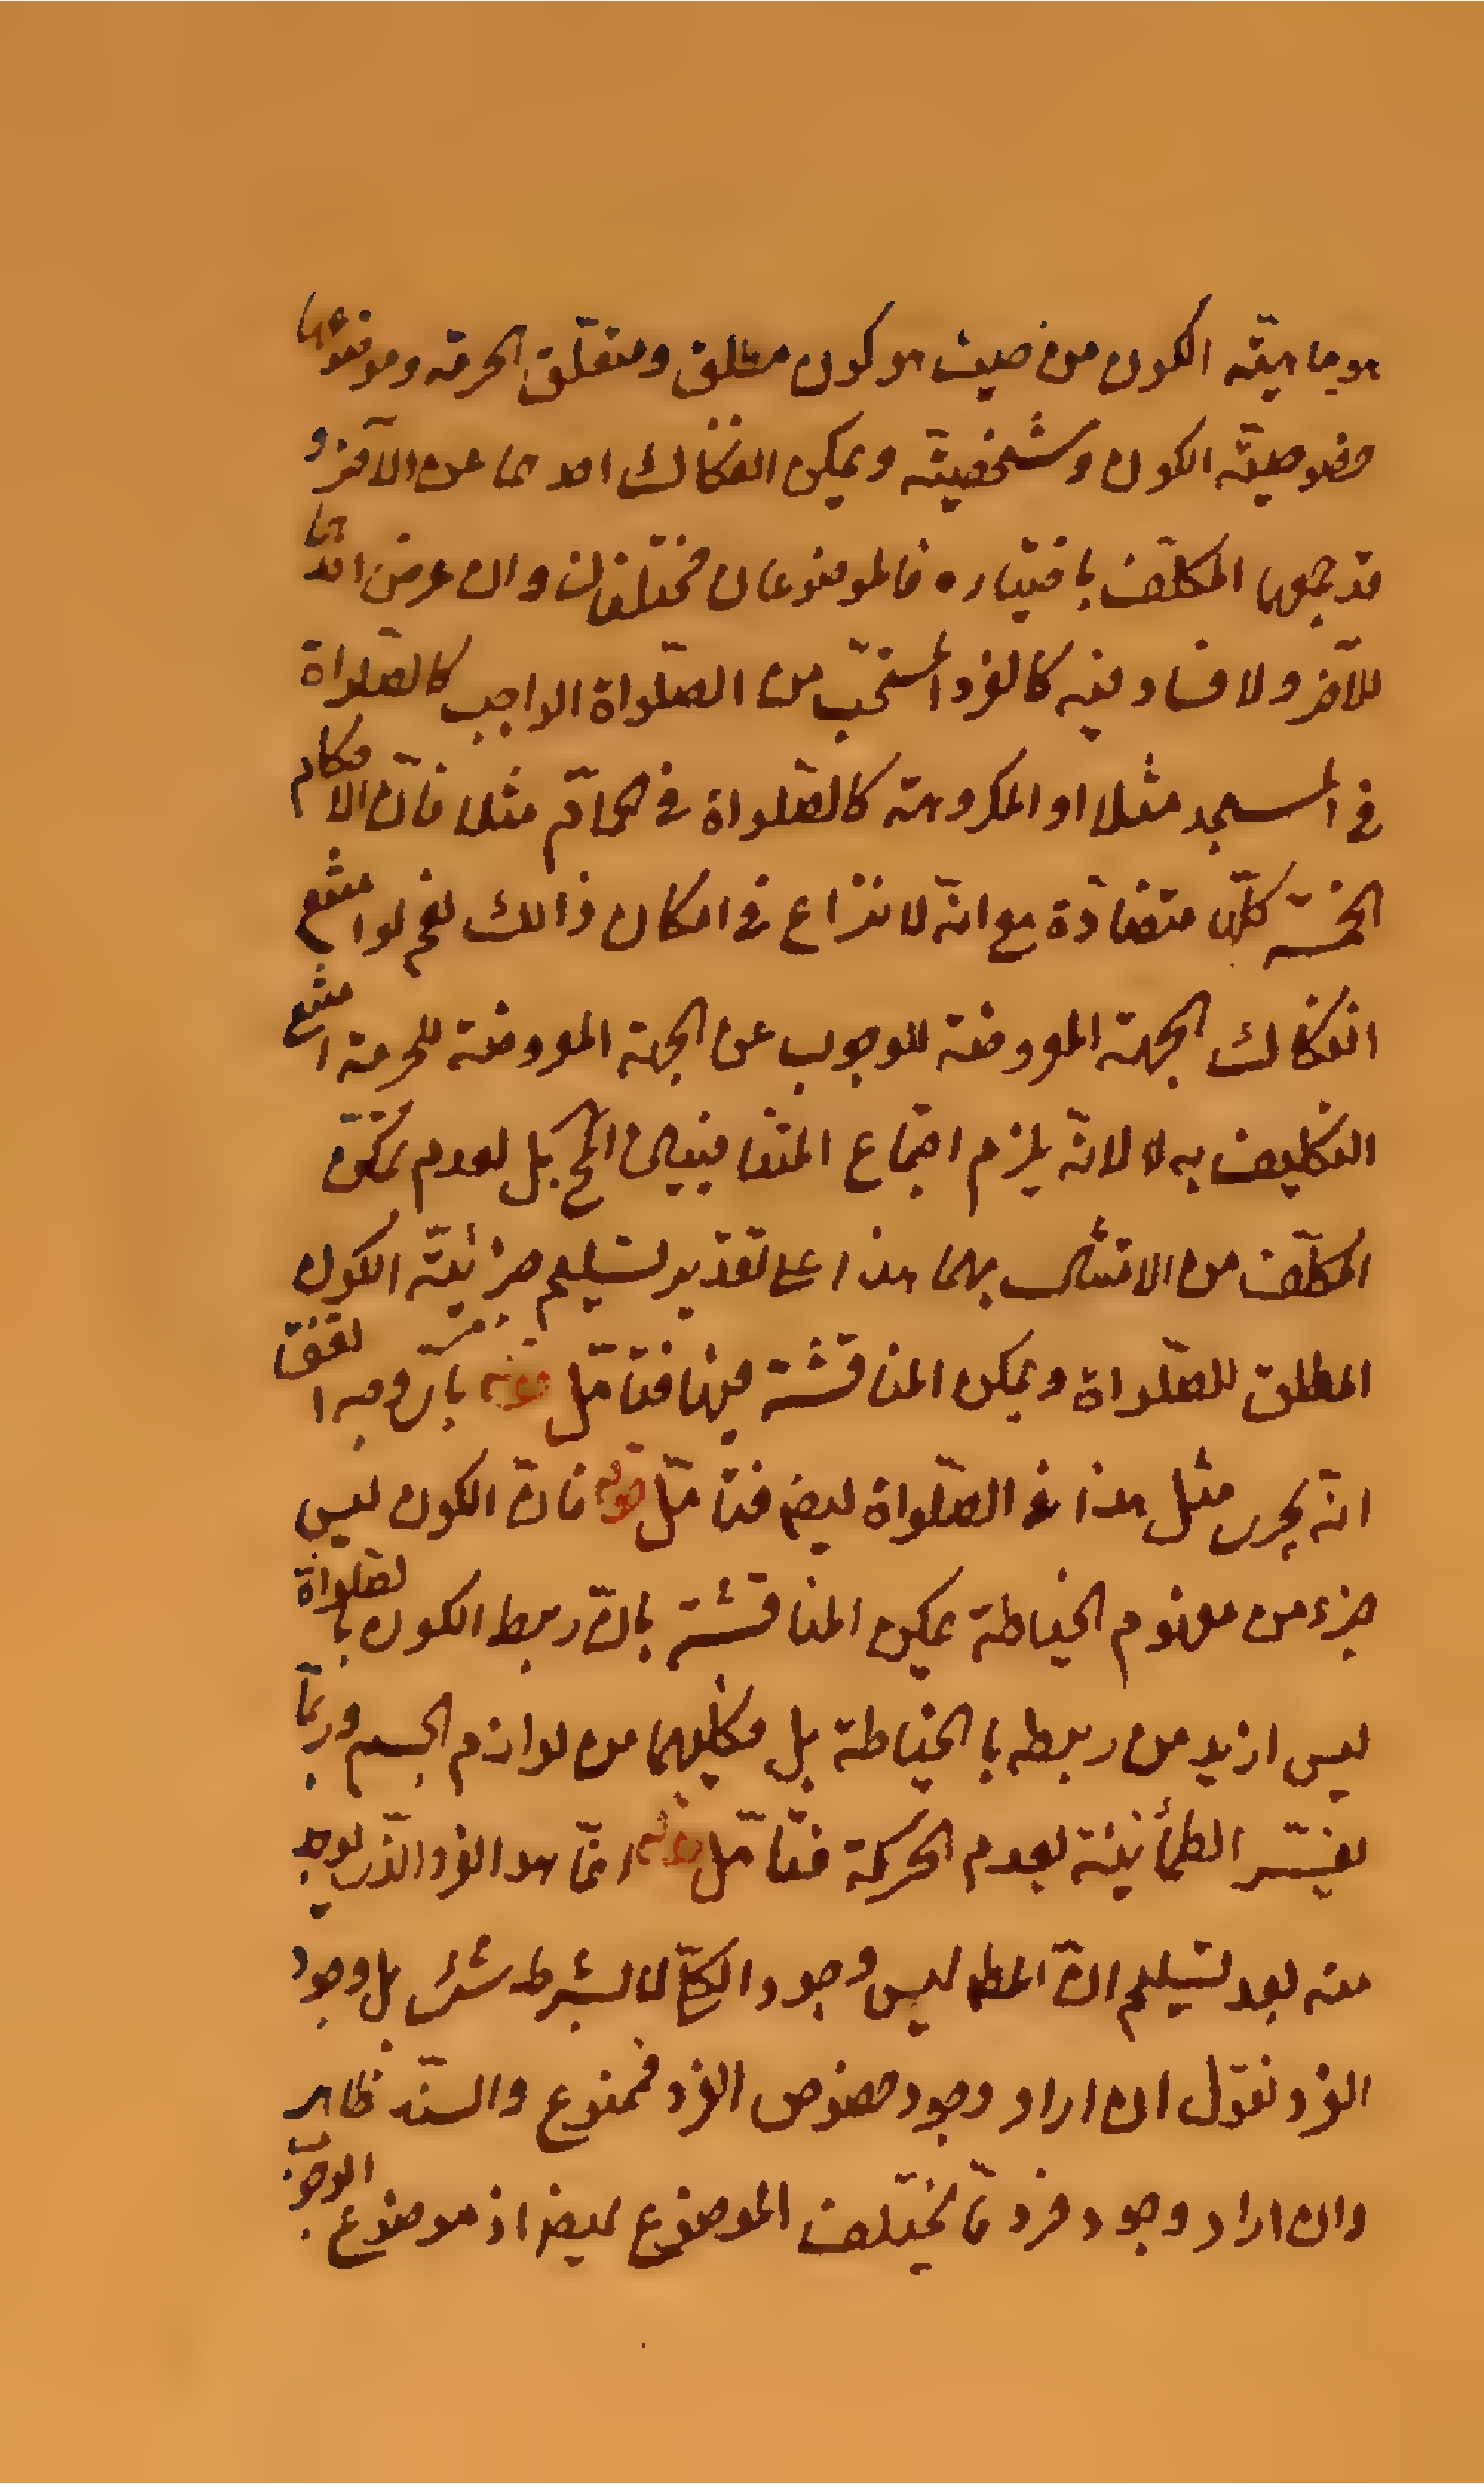 هو ماهيّته الكون من حيث هو كون مطلق ومتعلّق الحرمة وموضوعها
خصوصيّة الكون وشخصيّته ويمكن انفكاك احدهما عن الآخر و
قد جمعهما المكلّف باختياره فالموضوعان مختلفان وان عرض احدهما
للآخر ولا فساد فيه كالفرد المستحبّ من الصّلواة الواجب كالصّلواة
فى المسجد مثلا او المكروهة كالصّلواة فى الحمّام مثلا فانّ الاحكام
الخمسة كلّها متضادّة مع انّه لا نزاع فى امكان ذالك نعم لو امتنع
انفكاك الجهة المعروضة للوجوب عن الجهة المعروضة للحرمة امتنع
التكليف به لا لانّه يلزم اجتماع المتنافيين المح بل لعدم تمكّن
المكلّف من الامتثال بهما هذا على تقدير تسليم جزئيّة الكون
المطلق للصّلواة ويمكن المناقشة فيها فتامّل قوله بارّ وجه اتّفق
انّه يجرى مثل هذا فى الصّلواة ايض فتامّل قوله فانّ الكون ليس
جزء من مفهوم الخياطة يمكن المناقشة بانّ ربط الكون بالصّلواة
ليس ازيد من ربطه با الخياطة بل وكليهما من لوازم الجسم وربّما
يفسّر الطمأنينة بعدم الحركة فتامّل قوله انّما هو الفرد الّذى يوجد
منه بعد تسليم انّ المط ليس وجود الكلّى لا بشرط شئ بل وجود
الفرد نقول ان اراد وجود خصوص الفرد فممنوع والسّند ظاهر
وان اراد وجود فرد مّا يختلف الموضوع ايض اذ موضوع الوجوب